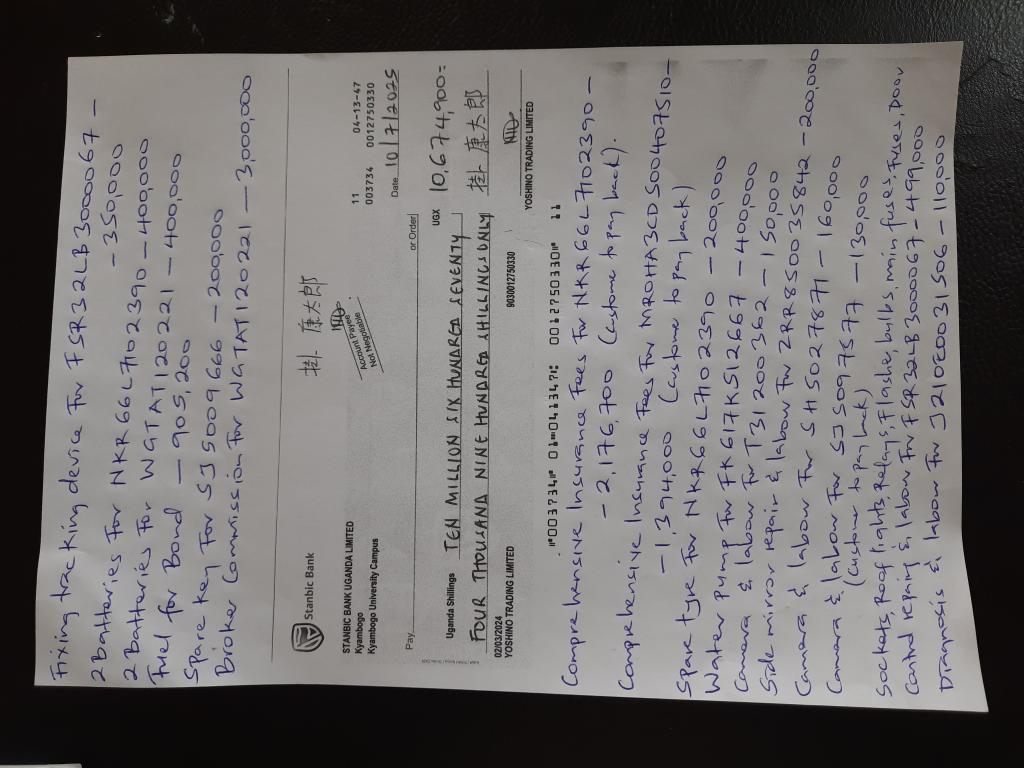 Fixing tracking device for FSR32LB3000067 —
2 Batteries for NKR66L7102390 - 350,000
2 Batteries for WGTAT1120221 - 400,000
Fuel for Bond — 905,200
Spare key for SJ5009666 - 200,000
Broker Commission for WGTAT1120221 - 3,000,000
掛 康太郎
Account Payee
Not Negotiable
11 04-13-47
003734 0012750330
Stanbic Bank
STANBIC BANK UGANDA LIMITED
Kyambogo
Kyambogo University Campus
Date 10/7/2025
Pay
or Order
UGX
Uganda Shillings TEN MILLION SIX HUNDRED SEVENTY 10,674,900=
FOUR THOUSAND NINE HUNDRED SHILLINGS ONLY 掛 康太郎
02/03/2024
YOSHINO TRADING LIMITED 9030012750330
YOSHINO TRADING LIMITED
⑈003734⑈ 01⑉041347⑆ 0012750330⑈ 11
Comprehensive Insurance Fees for NKR66L7102390 —
- 2,176,700 (Customer to pay back).
Comprehensive Insurance Fees for MR0HA3CD500407510 —
- 1,394,000 (Customer to pay back)
Spare tyre for NKR66L7102390 - 200,000
Water Pump for FK617K512667 - 400,000
Camera & labour for T31200362 - 150,000
Side mirror repair & labour for ZRR850035842 - 200,000
Camera & labour for SH5027871 - 160,000
Camera & labour for SJ5097577 - 130,000
(Customer to pay back)
Sockets, Roof lights, Relays, Flasher, bulbs, main fuses, Fuses, Door
Control repairing & labour for FSR32LB3000067 - 499,000
Diagnosis & labour for J210E0031506 - 110,000